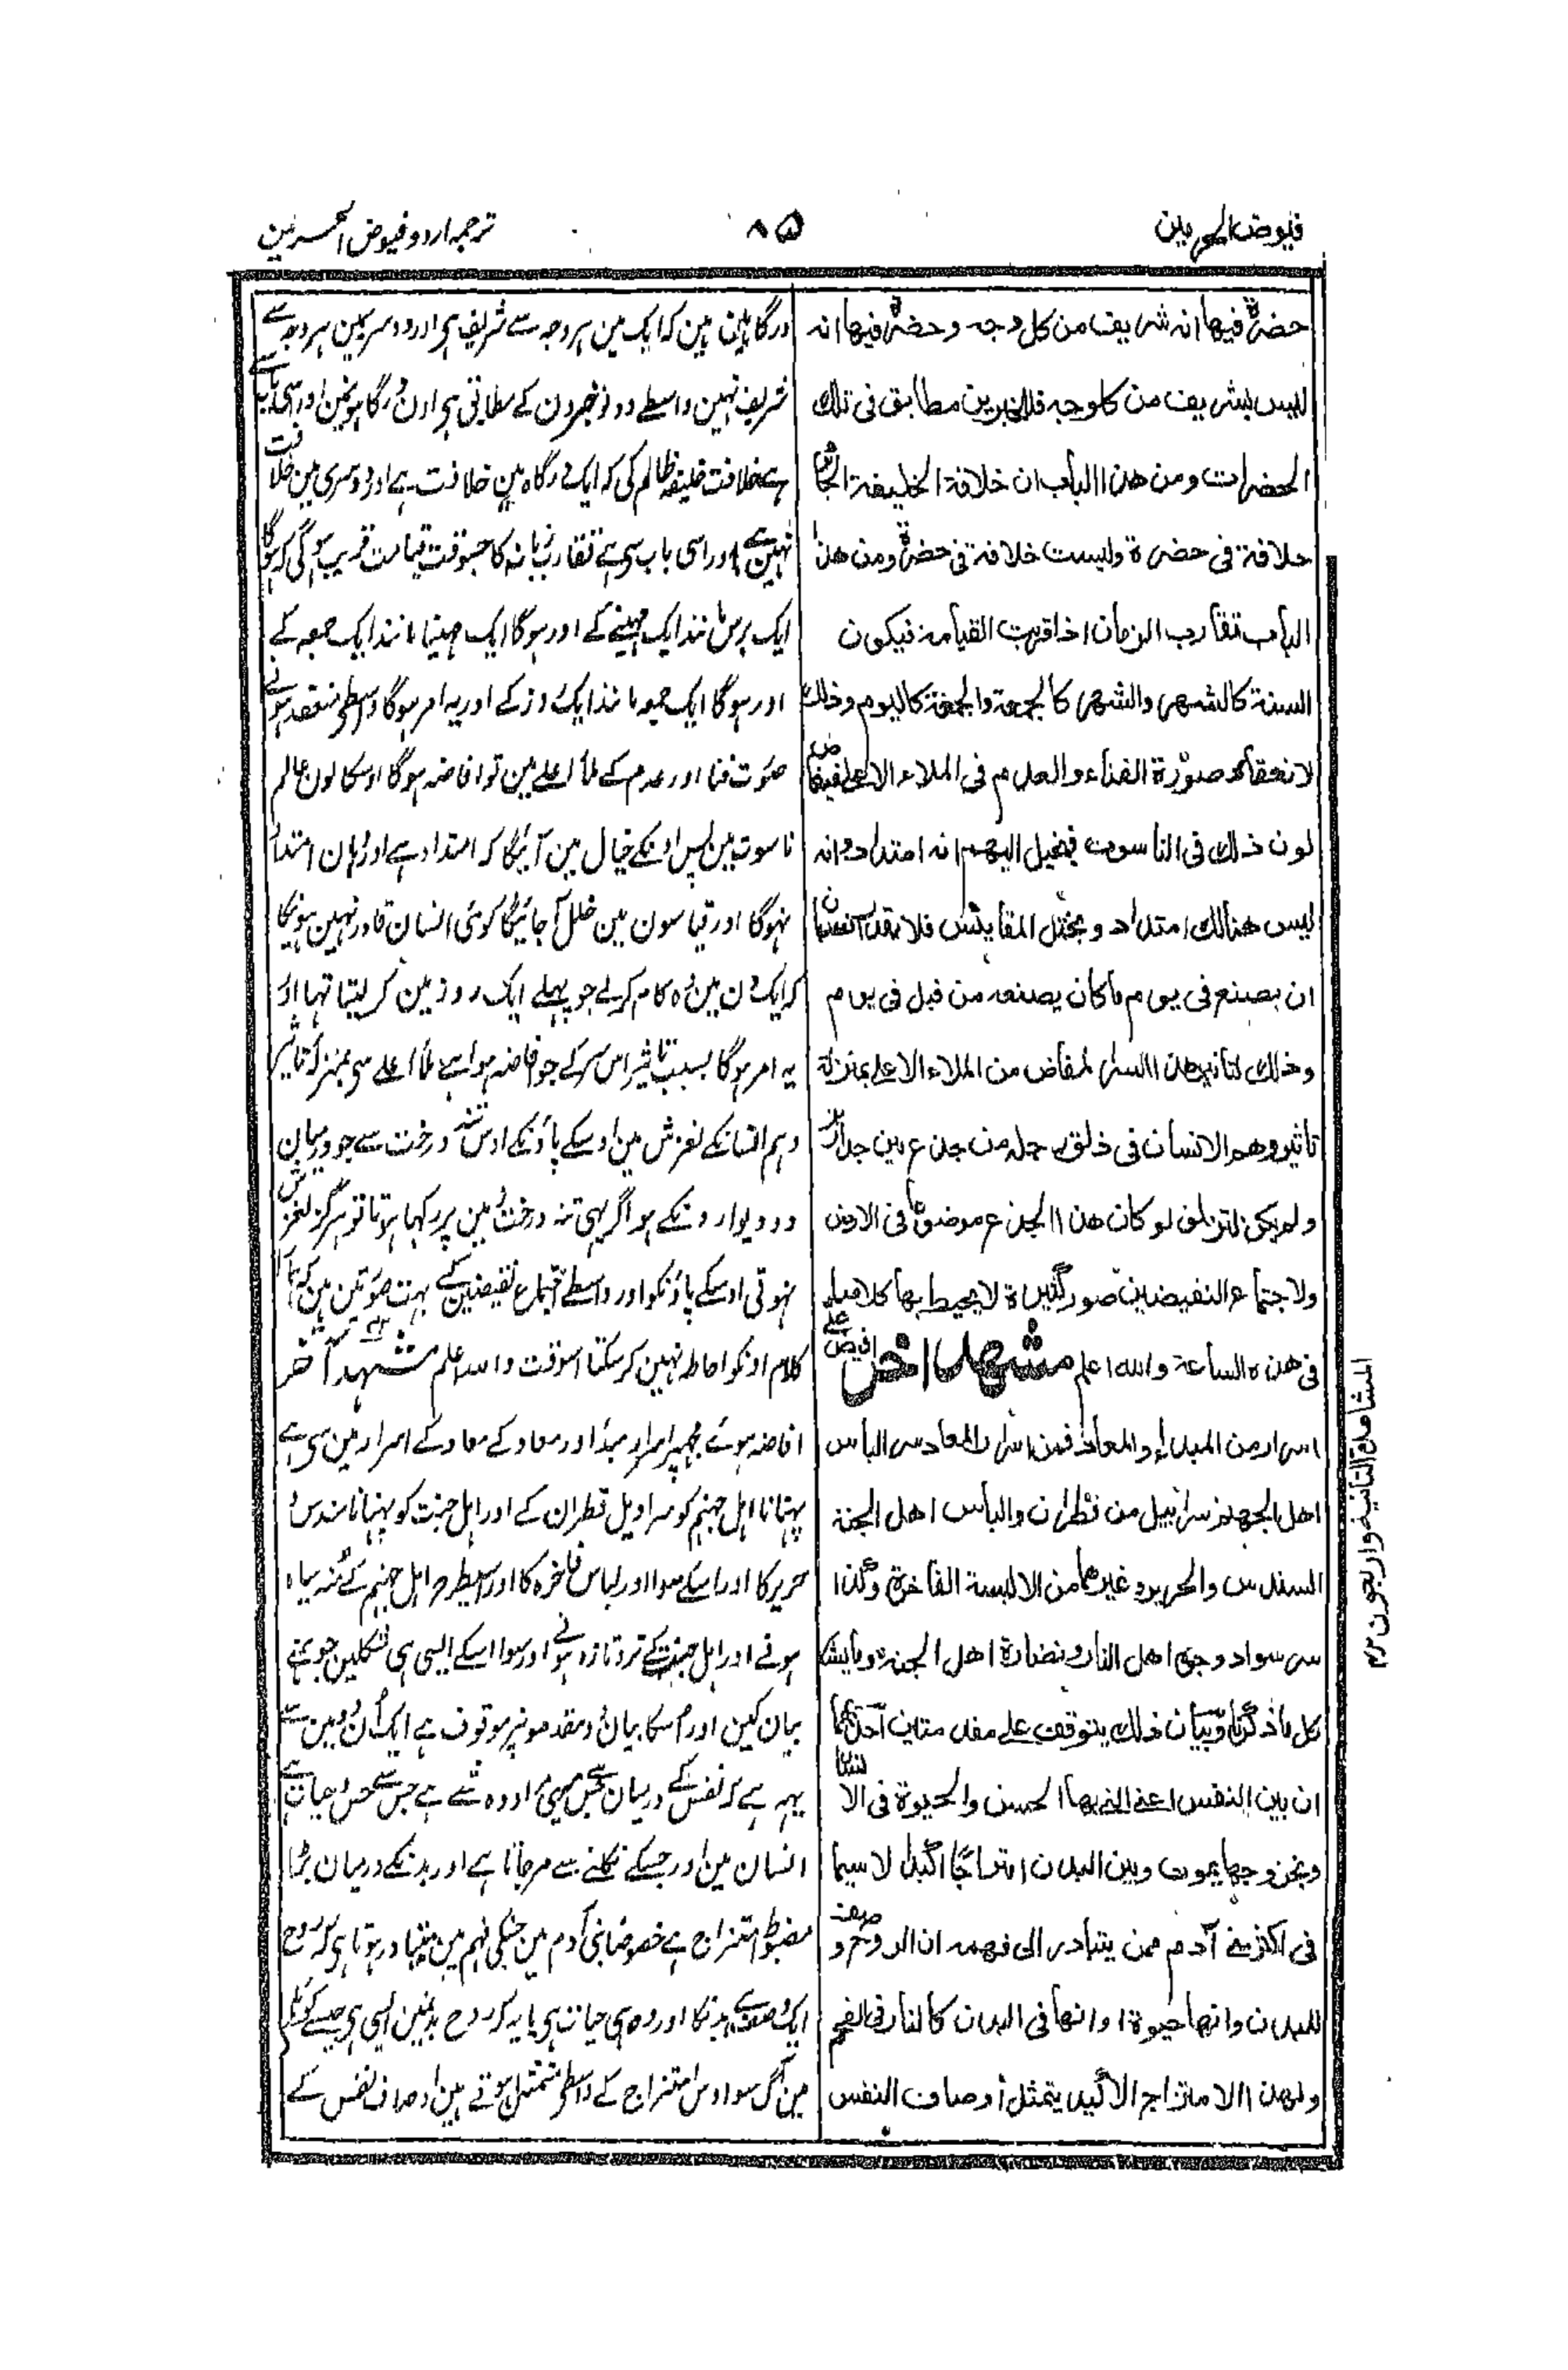 فیوض الحرمین
۸۵
ترجمہ اردو فیوض الحرمین
حضرۃ فیھا انہ شریف من کل وجہ وحضرۃ فیھا انہ
لیس بشریف من کل وجہ فللخبرین مطابق فی تلك
الحضرات ومن ھذا الباب ان خلافۃ الخلیفۃ الجائر
خلافۃ فی حضرۃ ولیست خلافۃ فی حضرۃ ومن ھذا
الباب تقارب الزمان اذا قربت القیامۃ فیکون
السنۃ کالشھر والشھر کالجمعۃ والجمعۃ کالیوم وذلك
لانعقاد صورۃ الفناء والعدم فی الملاء الاعلی فیفاض
لون ذلك فی الناسوت فیخیل الیھم انہ امتداد وانہ
لیس ھنالك امتداد ویختل المقایس فلا یقدر انسان
ان یصنع فی یوم ما کان یصنعہ من قبل فی یوم
وذلك لتاثیر ھذا السر المفاض من الملاء الاعلی بمنزلۃ
تاثیر وھم الانسان فی زلق رجلہ من جذع بین جدارین
ولم یکن لتزلق لو کان ھذا الجذع موضوعا فی الارض
ولاجتماع النقیضین صور کثیرۃ لا یحیط بھا کلامنا
فی ھذہ الساعۃ واللہ اعلم مشھد اخر افیض علی
اسرار من المبداء والمعاد فمن اسرار المعاد سر الباس
اھل الجھنم سرابیل من قطران والباس اھل الجنۃ
السندس والحریر وغیرھما من الالبسۃ الفاخرۃ وکذا
سر سواد وجوہ اھل النار ونضارۃ اھل الجنۃ وما یشا
کل ما ذکرنا وبیان ذلك یتوقف علی مقدمتین احدھما
ان بین النفس اعنی التی بھا الحس والحیوۃ فی الانسان
وبخروجھا یموت وبین البدن امتزاجا اکیدا لا سیما
فی اکثر بنی آدم ممن یتبادر الی فھمہ ان الروح صفۃ
للبدن وانھا حیوۃ او انھا فی البدن کالنار فی الفحم
ولھذا الامتزاج الاکید یتمثل اوصاف النفس
درگاہین ہین کہ ایک مین ہر وجہ سے شریف ہی اور دوسرے مین ہر وجہ سے
شریف نہین واسطے دونو خبرون کے مطابق ہی اون درگاہونمین اور اسی باب سے
ہے خلافت خلیفہ ظالم کی کہ ایک درگاہ مین خلافت ہے اور دوسری مین خلافت
نہین ہے اور اسی باب سے ہے تقارب زمانہ کا جسوقت قیامت قریب ہوگی کہ ہوگا
ایک برس مانند ایک مہینے کے اور ہوگا ایک مہینا مانند ایک جمعہ کے
اور ہوگا ایک جمعہ مانند ایک روز کے اور یہ امر ہوگا واسطے منعقد ہونے
صورت فنا اور عدم کے ملأ اعلے مین تو افاضہ ہوگا اوسکا لون عالم
ناسوت مین پس اونکے خیال مین آئیگا کہ امتداد ہے اور وہان امتداد
نہوگا اور قیاسون مین خلل آجائیگا کوئی انسان قادر نہین ہونیکا
کہ ایک دن مین وہ کام کرلے جو پہلے ایک روز مین کر لیتا تہا اور
یہ امر ہوگا بسبب تاثیر اس سر کے جو افاضہ ہوا ہے ملأ اعلے سی بمنزلہ تاثیر
وہم انسانکے لغزش مین اوسکے پاؤنکے اوس تنہ درخت سے جو درمیان
دو دیوارونکے ہو اگر یہی تنہ درخت زمین پر رکہا ہوتا تو ہرگز لغزش
نہوتی اوسکے پاؤنکو اور واسطے اجتماع نقیضین کے بہت صورتین ہین کہ ہمارا
کلام اونکو احاطہ نہین کرسکتا اسوقت واللہ اعلم مشہد آخر
افاضہ ہوئے مجہپر اسرار مبدأ اور معاد کے معاد کے اسرار مین سی ہے
پہنانا اہل جہنم کو سراویل قطران کے اور اہل جنت کو پہنانا سندس و
حریر کا اور اسکے سوا اور لباس فاخرہ کا اور اسیطرح اہل جہنم کے مُنہ سیاہ
ہونے اور اہل جنت کے تر و تازہ ہونے اور سوا اسکے ایسی ہی شکلین جو ہمنے
بیان کین اور اسکا بیان دو مقدمونپر موقوف ہے ایک اُن دو مین سے
یہہ ہے کہ نفس کے درمیان یعنی میری مراد وہ شے ہے جس سے حس و حیات ہے
انسان مین اور جسکے نکلنے سے مرجاتا ہے اور بدنکے درمیان بڑا
مضبوط امتزاج ہے خصوصا بنی آدم مین جنکی فہم مین متبادر ہوتا ہی کہ روح
ایک وصف ہے بدنکا اور وہ ہی حیات ہی یا یہ کہ روح بدنمین ایسی ہی جیسے کوئلے
مین آگ سو اوس امتزاج کے واسطے متمثل ہوتے ہین اوصاف نفس کے
المشاھدۃ الثانیۃ واربعون